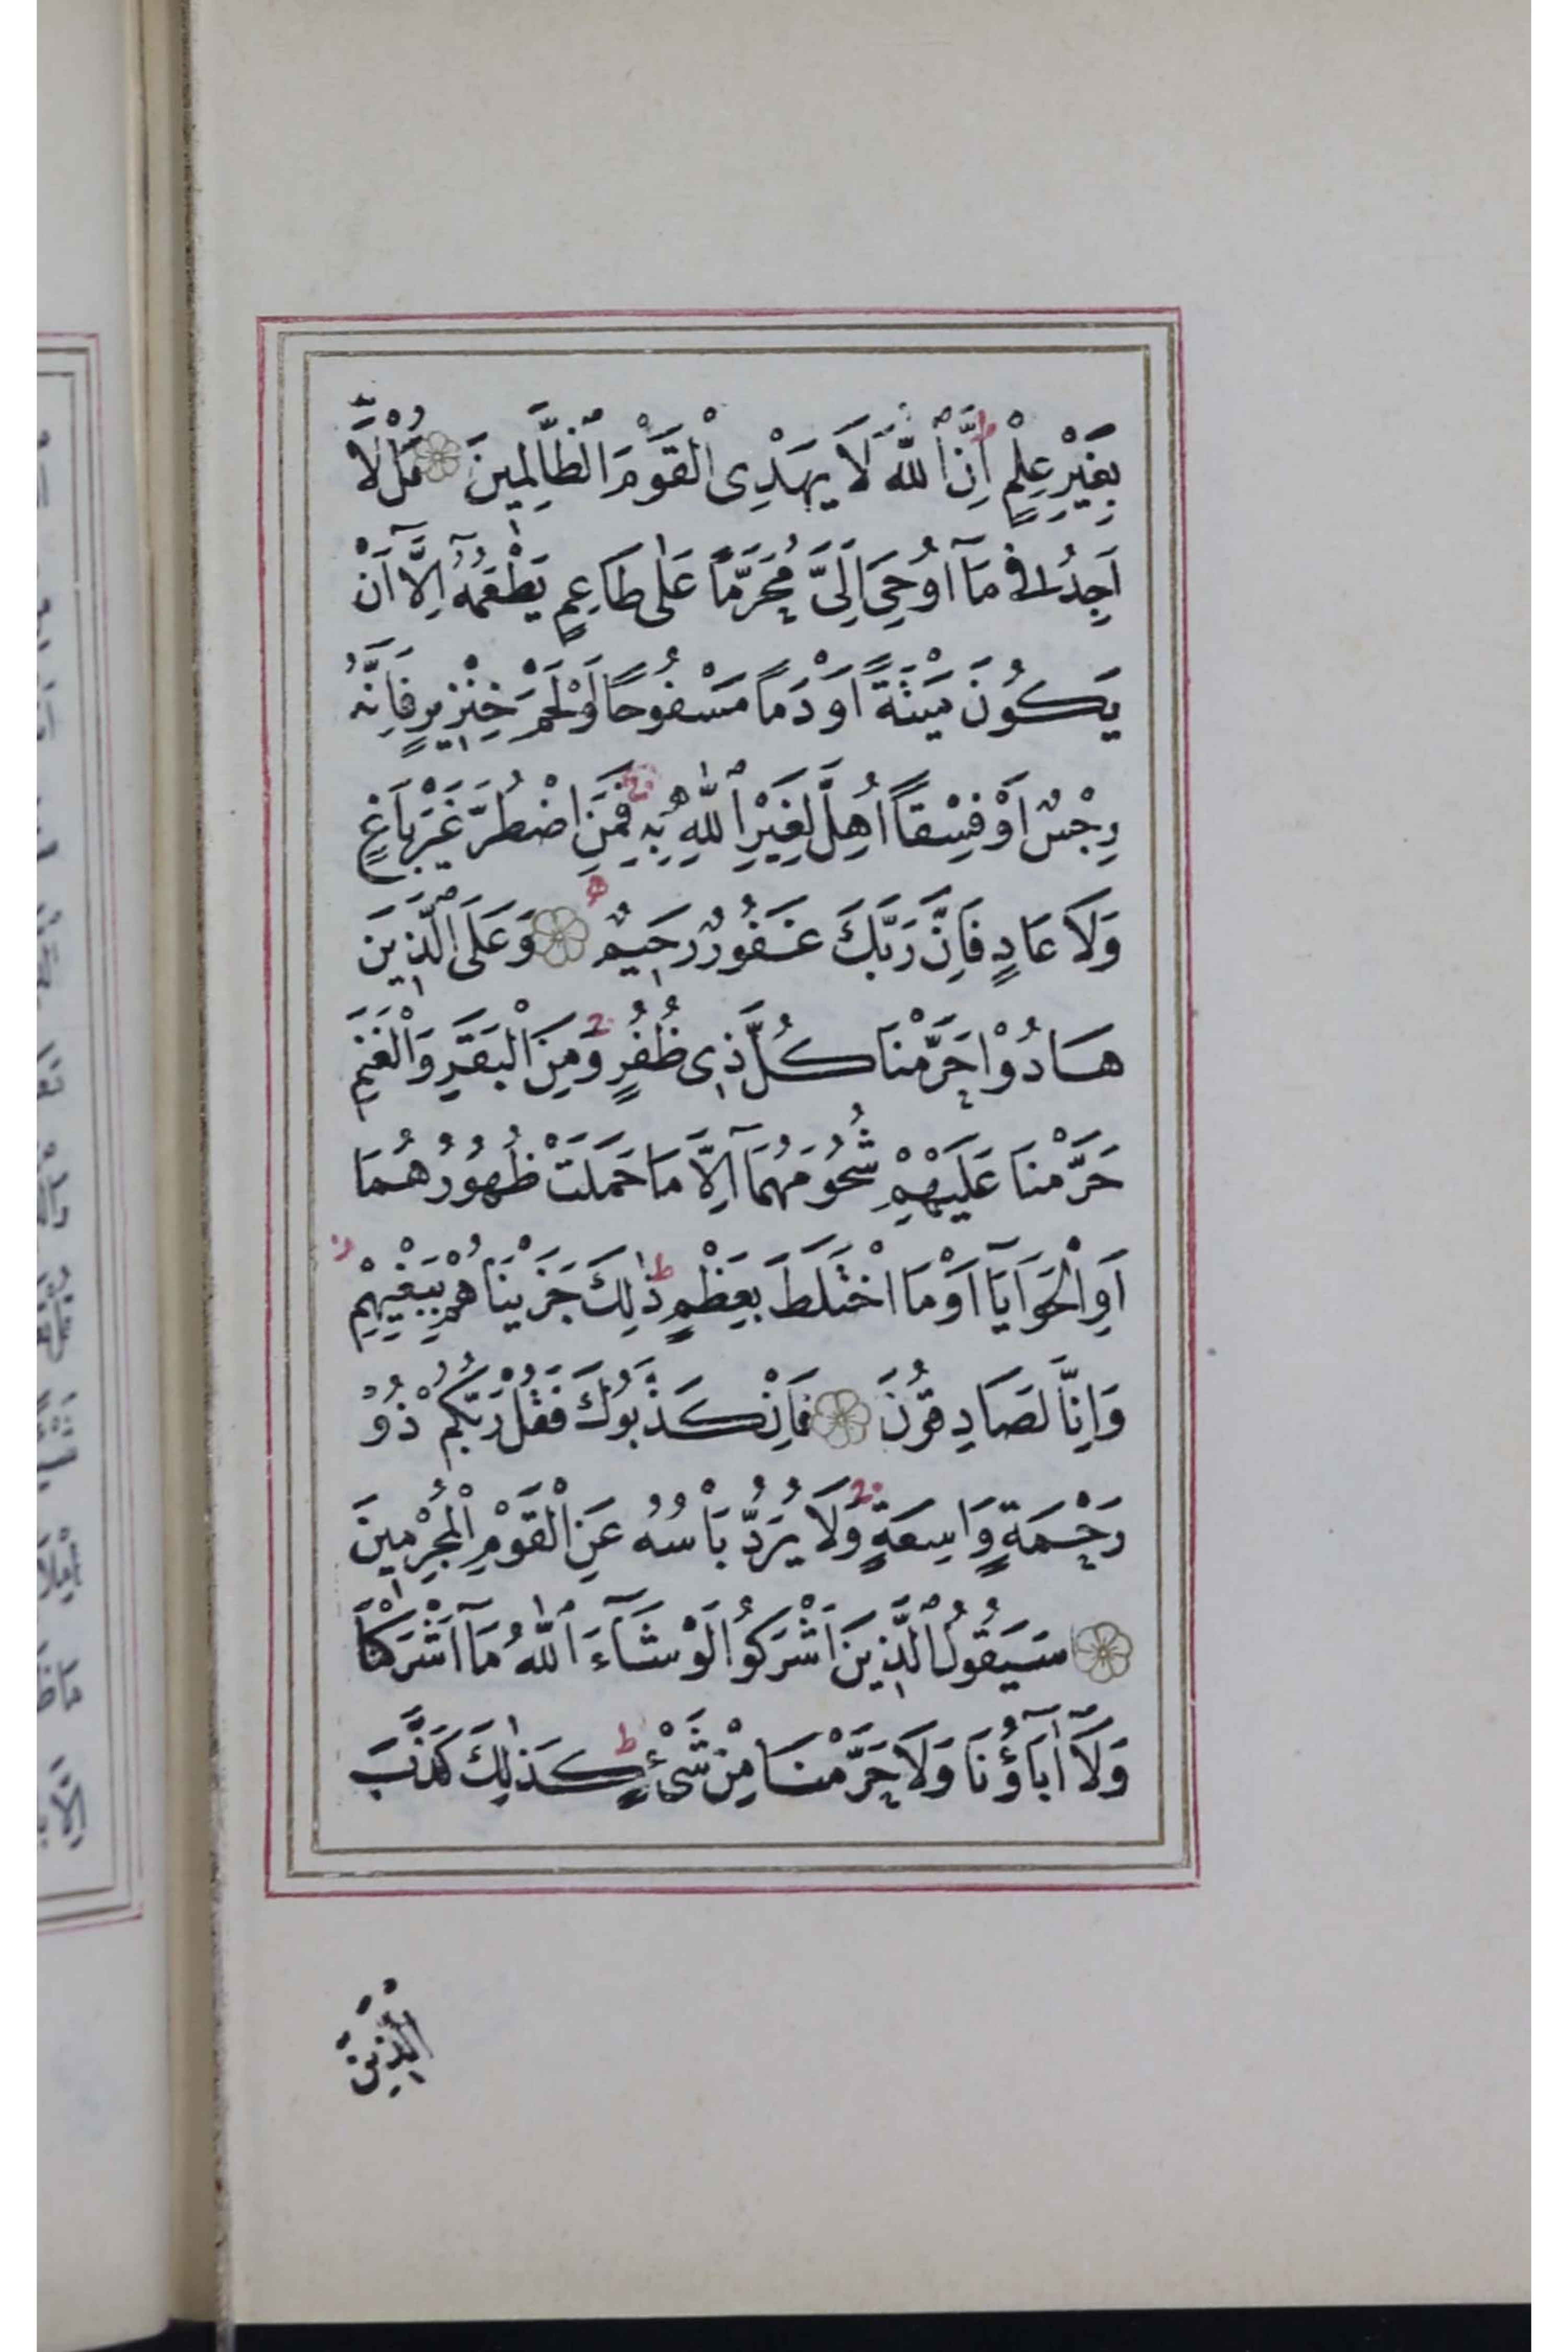 بِغَيْرِ عِلْمٍ ط اِنَّ ٱللّٰهَ لَا يَهْدِى ٱلْقَوْمَ ٱلظَّالِمِينَ قُلْ لَآ
اَجِدُ فِى مَآ اُوحِىَ اِلَىَّ مُحَرَّمًا عَلٰى طَاعِمٍ يَطْعَمُهُٓ اِلَّآ اَنْ
يَكُونَ مَيْتَةً اَوْ دَمًا مَسْفُوحًا اَوْ لَحْمَ خِنْزِيرٍ فَاِنَّهُ
رِجْسٌ اَوْ فِسْقًا اُهِلَّ لِغَيْرِ ٱللّٰهِ بِهِ ج فَمَنِ اضْطُرَّ غَيْرَ بَاغٍ
وَلَا عَادٍ فَاِنَّ رَبَّكَ غَفُورٌ رَحِيمٌ وَعَلَى ٱلَّذِينَ
هَادُوْا حَرَّمْنَا كُلَّ ذِى ظُفُرٍ ج وَمِنَ الْبَقَرِ وَالْغَنَمِ
حَرَّمْنَا عَلَيْهِمْ شُحُومَهُمَآ اِلَّا مَا حَمَلَتْ ظُهُورُهُمَا
اَوِ الْحَوَايَآ اَوْ مَا اخْتَلَطَ بِعَظْمٍ ط ذٰلِكَ جَزَيْنَاهُمْ بِبَغْيِهِمْ ز
وَاِنَّا لَصَادِقُونَ فَاِنْ كَذَّبُوكَ فَقُلْ رَبُّكُمْ ذُوْ
رَحْمَةٍ وَاسِعَةٍ ج وَلَا يُرَدُّ بَأْسُهُ عَنِ الْقَوْمِ الْمُجْرِمِينَ
سَيَقُولُ ٱلَّذِينَ اَشْرَكُوا لَوْ شَآءَ ٱللّٰهُ مَآ اَشْرَكْنَا
وَلَآ اٰبَآؤُنَا وَلَا حَرَّمْنَا مِنْ شَىْءٍ ط كَذٰلِكَ كَذَّبَ
الَّذِينَ